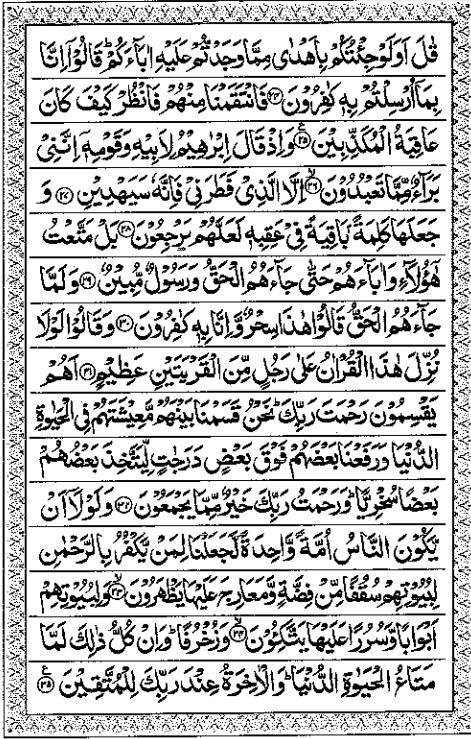 قٰلَ اَوَلَوْ جِئْتُكُمْ بِاَهْدٰى مِمَّا وَجَدْتُّمْ عَلَيْهِ اٰبَآءَكُمْ ؕ قَالُوْۤا اِنَّا
بِمَاۤ اُرْسِلْتُمْ بِهٖ كٰفِرُوْنَ ﴿۲۴﴾ فَانْتَقَمْنَا مِنْهُمْ فَانْظُرْ كَيْفَ كَانَ
عَاقِبَةُ الْمُكَذِّبِيْنَ ﴿۲۵﴾ وَاِذْ قَالَ اِبْرٰهِيْمُ لِاَبِيْهِ وَقَوْمِهٖۤ اِنَّنِىْ
بَرَآءٌ مِّمَّا تَعْبُدُوْنَ ﴿۲۶﴾ اِلَّا الَّذِىْ فَطَرَنِىْ فَاِنَّهٗ سَيَهْدِيْنِ ﴿۲۷﴾ وَ
جَعَلَهَا كَلِمَةًۢ بَاقِيَةً فِىْ عَقِبِهٖ لَعَلَّهُمْ يَرْجِعُوْنَ ﴿۲۸﴾ بَلْ مَتَّعْتُ
هٰٓؤُلَآءِ وَاٰبَآءَهُمْ حَتّٰى جَآءَهُمُ الْحَقُّ وَرَسُوْلٌ مُّبِيْنٌ ﴿۲۹﴾ وَلَمَّا
جَآءَهُمُ الْحَقُّ قَالُوْا هٰذَا سِحْرٌ وَّاِنَّا بِهٖ كٰفِرُوْنَ ﴿۳۰﴾ وَقَالُوْا لَوْلَا
نُزِّلَ هٰذَا الْقُرْاٰنُ عَلٰى رَجُلٍ مِّنَ الْقَرْيَتَيْنِ عَظِيْمٍ ﴿۳۱﴾ اَهُمْ
يَقْسِمُوْنَ رَحْمَتَ رَبِّكَ ؕ نَحْنُ قَسَمْنَا بَيْنَهُمْ مَّعِيْشَتَهُمْ فِى الْحَيٰوةِ
الدُّنْيَا وَرَفَعْنَا بَعْضَهُمْ فَوْقَ بَعْضٍ دَرَجٰتٍ لِّيَتَّخِذَ بَعْضُهُمْ
بَعْضًا سُخْرِيًّا ؕ وَرَحْمَتُ رَبِّكَ خَيْرٌ مِّمَّا يَجْمَعُوْنَ ﴿۳۲﴾ وَلَوْلَاۤ اَنْ
يَّكُوْنَ النَّاسُ اُمَّةً وَّاحِدَةً لَّجَعَلْنَا لِمَنْ يَّكْفُرُ بِالرَّحْمٰنِ
لِبُيُوْتِهِمْ سُقُفًا مِّنْ فِضَّةٍ وَّمَعَارِجَ عَلَيْهَا يَظْهَرُوْنَ ﴿۳۳﴾ وَلِبُيُوْتِهِمْ
اَبْوَابًا وَّسُرُرًا عَلَيْهَا يَتَّكِئُوْنَ ﴿۳۴﴾ وَزُخْرُفًا ؕ وَاِنْ كُلُّ ذٰلِكَ لَمَّا
مَتَاعُ الْحَيٰوةِ الدُّنْيَا ؕ وَالْاٰخِرَةُ عِنْدَ رَبِّكَ لِلْمُتَّقِيْنَ ﴿۳۵﴾